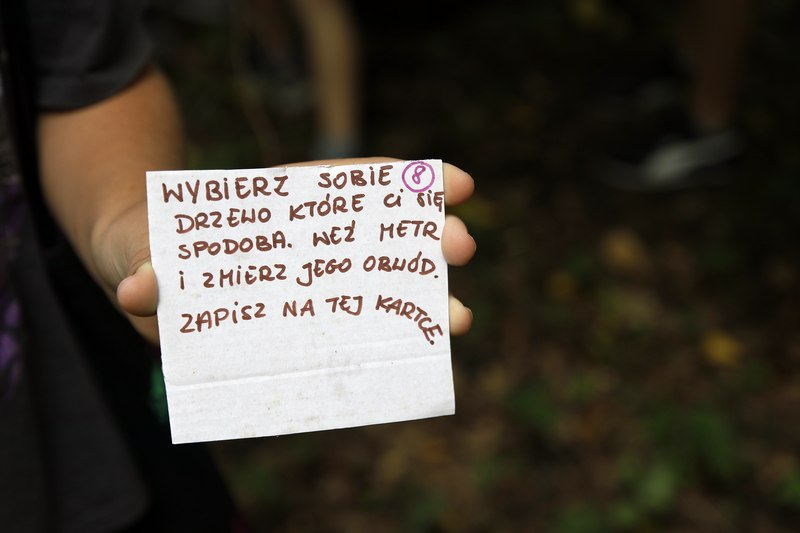 WYBIERZ SOBIE 8
DRZEWO KTÓRE Ci SIĘ
SPODOBA. WEŹ METR
i ZMIERZ JEGO OBWÓD.
ZAPiSZ NA TEJ KARTCE.